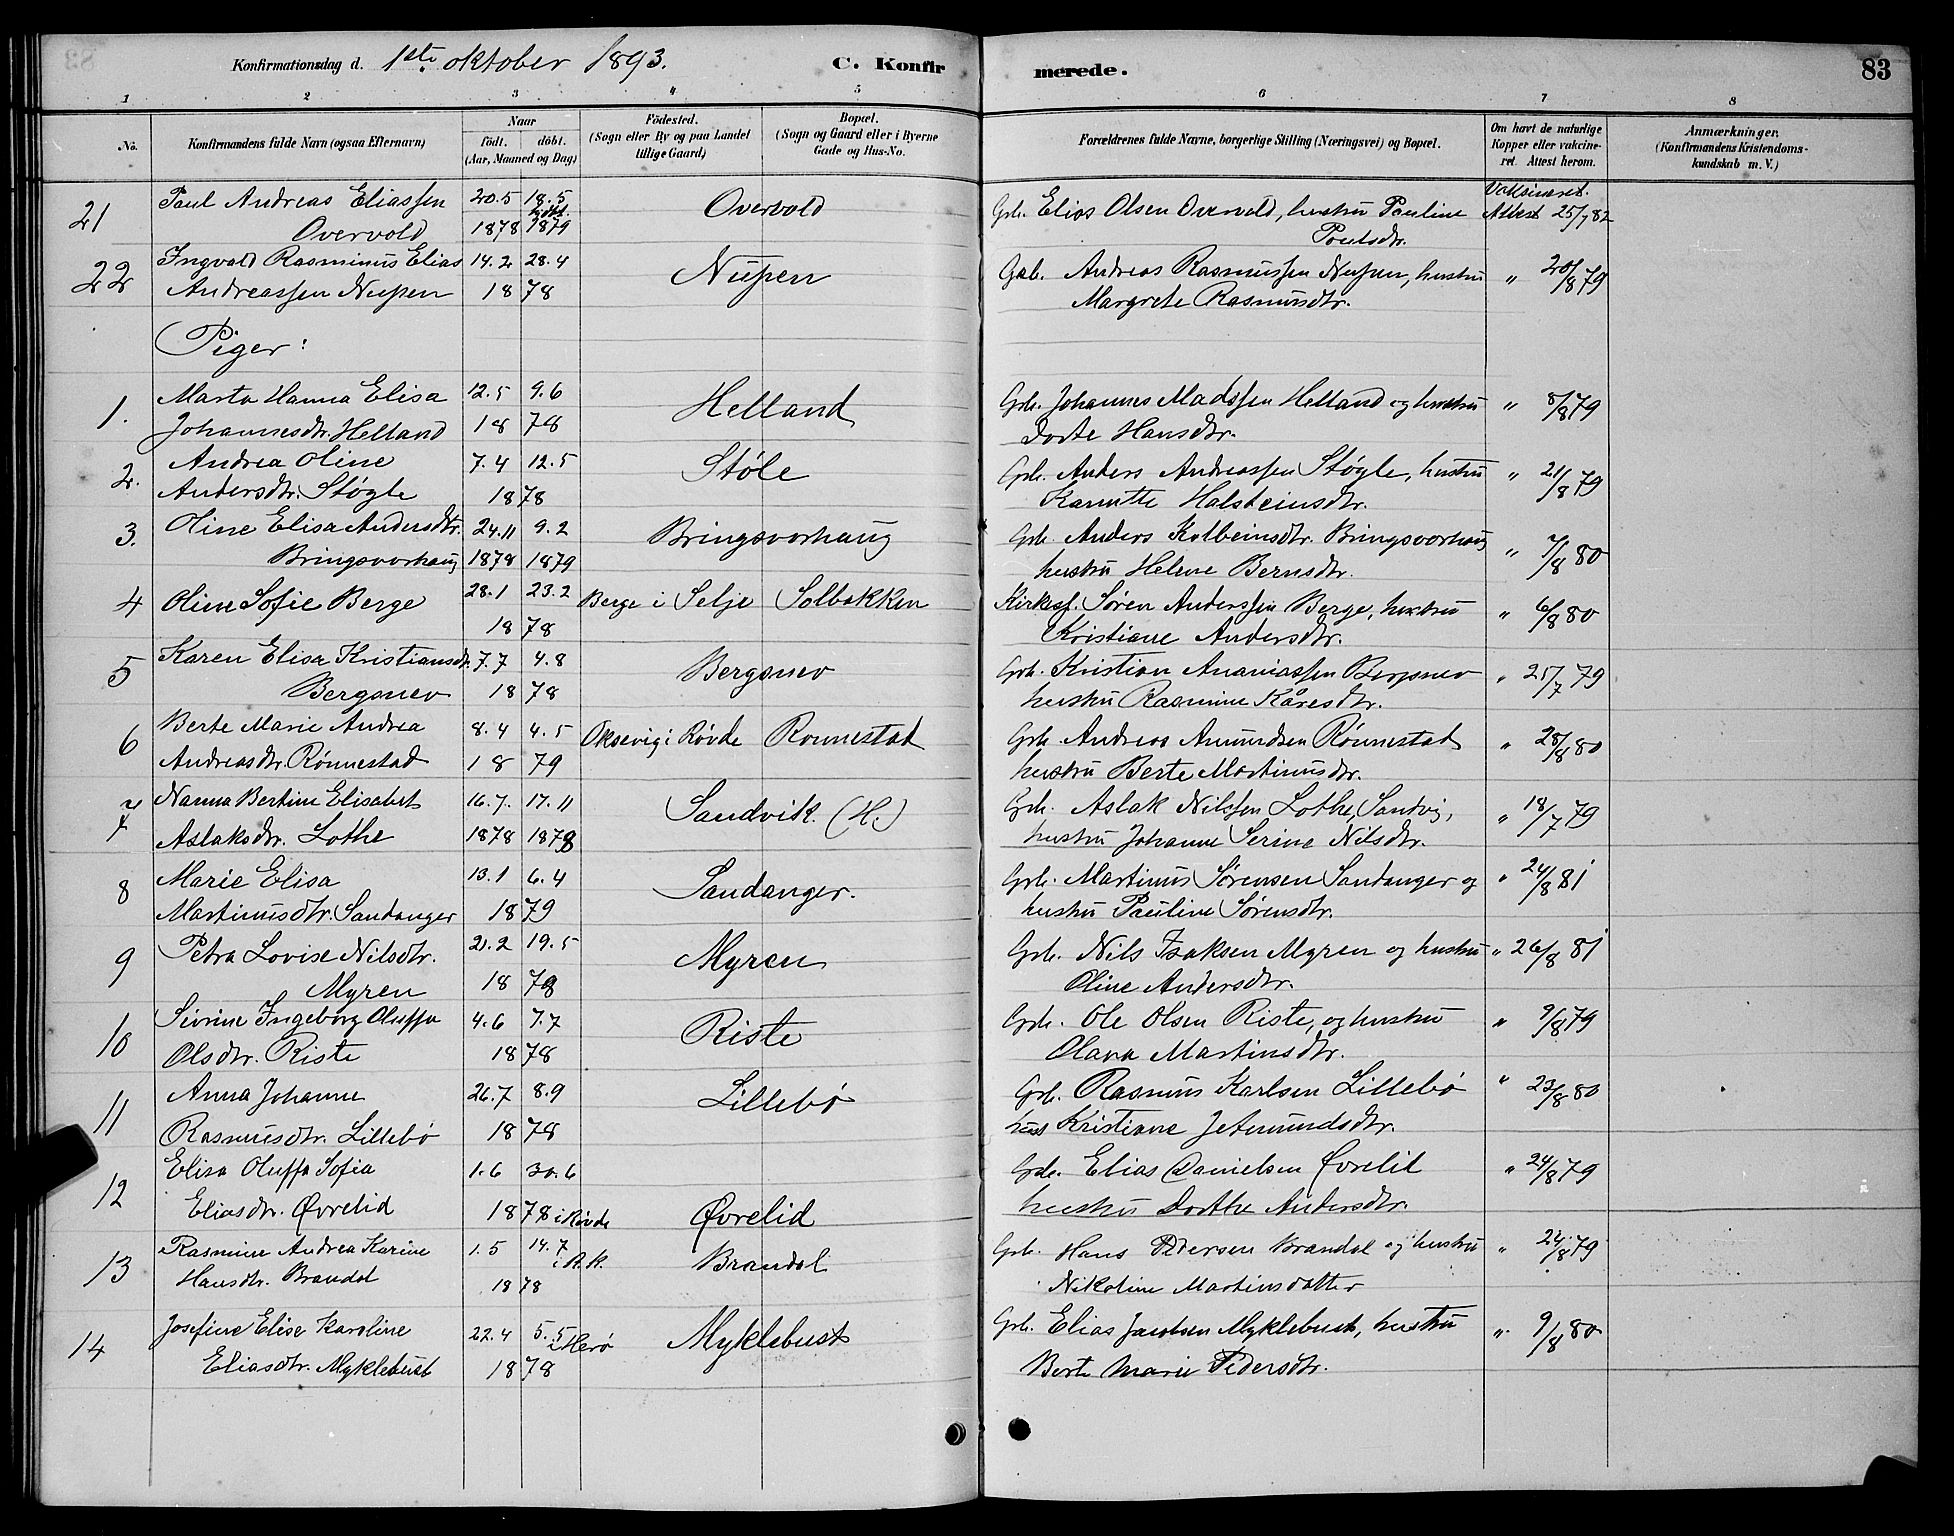 Konfirmationsdag d. 1ste oktober 1893. C. Konfirmerede. 83
1 2 3 4 5 6 7 8
No. Konfirmandens fulde Navn (ogsaa Efternavn) Naar födt. döbt. (Aar, Maaned og Dag) Födested. (Sogn eller By og paa Landet tillige Gaard) Bopæl. (Sogn og Gaard eller i Byerne Gade og Hus-No.) Forældrenes fulde Navne, borgerlige Stilling (Næringsvei) og Bopæl. Om havt de naturlige Kopper eller vakcineret. Attest herom. Anmærkninger. (Konfirmandens Kristendomskundskab m. V.)
21 Paul Andreas Eliassen 20.5 18.5 Overvold Grb. Elias Olsen Overvold, hustru Pauline Vaksineret. Attest 25/7 82
Overvold 1878 1879 Poulsdtr.
22 Ingvald Rasminus Elias 14.2 28.4 Nupen Gab. Andreas Rasmussen Nupen, hustru " 20/8 79
Andreassen Nupen 1878 Margrete Rasmusdtr.
Piger:
1. Marta Hanna Elisa 12.5 9.6 Helland Grb. Johannes Madssen Helland og hustru " 8/8 79
Johannesdtr. Helland 1878 Dorte Hansdtr.
2. Andrea Oline 7.4 12.5 Støle Grb. Anders Andreassen Støyle, hustru " 21/8 79
Andersdtr. Støyle 1878 Kanutte Halsteinsdtr.
3. Oline Elisa Andersdtr. 24.11 9.2 Bringsvorhaug Grb. Anders Kolbeinsdtr. Bringsvorhaug " 7/8 80
Bringsvorhaug 1878 1879 hustru Helene Bernsdtr.
4 Oline Sofie Berge 28.1 23.2 Berge i Selje Solbakken Kirkes. Søren Anderssen Berge, hustru " 6/8 80
1878 Kristiane Andersdtr.
5 Karen Elisa Kristiansdtr. 7.7 4.8 Bergsnev Grb. Kristian Ananiassen Bergsnev " 25/7 79
Bergsnev 1878 hustru Rasmine Kåresdtr.
6 Berte Marie Andrea 8.4 4.5 Oksevig i Røvde Ronnestad Grb. Andreas Amundsen Rønnestad " 28/8 80
Andreasdtr. Rønnestad 1879 hustru Berte Martinusdtr.
7 Nanna Bertine Elisabet 16.7. 17.11 Sandvik (H.) Grb. Aslak Nilssen Lothe, Sandvig, " 18/7 79
Aslaksdtr. Lothe 1878 1878 hustru Johanne Serine Nilsdtr.
8 Marie Elisa 13.1 6.4 Sandanger. Grb. Martinus Sørensen Sandanger og " 24/8 81
Martinusdtr. Sandanger 1879 hustru Pauline Sørensdtr.
9 Petra Lovise Nilsdtr. 21.2 19.5 Myren Grb. Nils Isaksen Myren og hustru " 26/8 81
Myren 1878 Oline Andersdtr.
10 Sivrine Ingeborg Oluffa 4.6 7.7 Riste Grb. Ole Olsen Riste, og hustru " 9/8 79
Olsdtr. Riste 1878 Olava Martinsdtr.
11 Anna Johanne 26.7 8.9 Lillebø Grb. Rasmus Karlsen Lillebø " 23/8 80
Rasmusdtr. Lillebø 1878 hus Kristiane Jetmundsdtr.
12 Elisa Oluffa Sofia 1.6 30.6 Grb. Elias Danielsen Øvrelid " 24/8 79
Eliasdtr. Øvrelid 1878 i Røvde Øvrelid hustru Dorthe Andersdtr.
13 Rasmine Andrea Karine 1.5 14.7 i R.K. Brandal Grb. Hans Pedersen Brandal og hustru " 24/8 79
Hansdtr. Brandal 1878 Nikoline Martinsdatter
14 Josefine Elise Karoline 22.4 5.5 i Herø Myklebust Grb. Elias Jacobsen Myklebust, hustru " 9/8 80
Eliasdtr. Myklebust 1878 Berte Marie Pedersdtr.